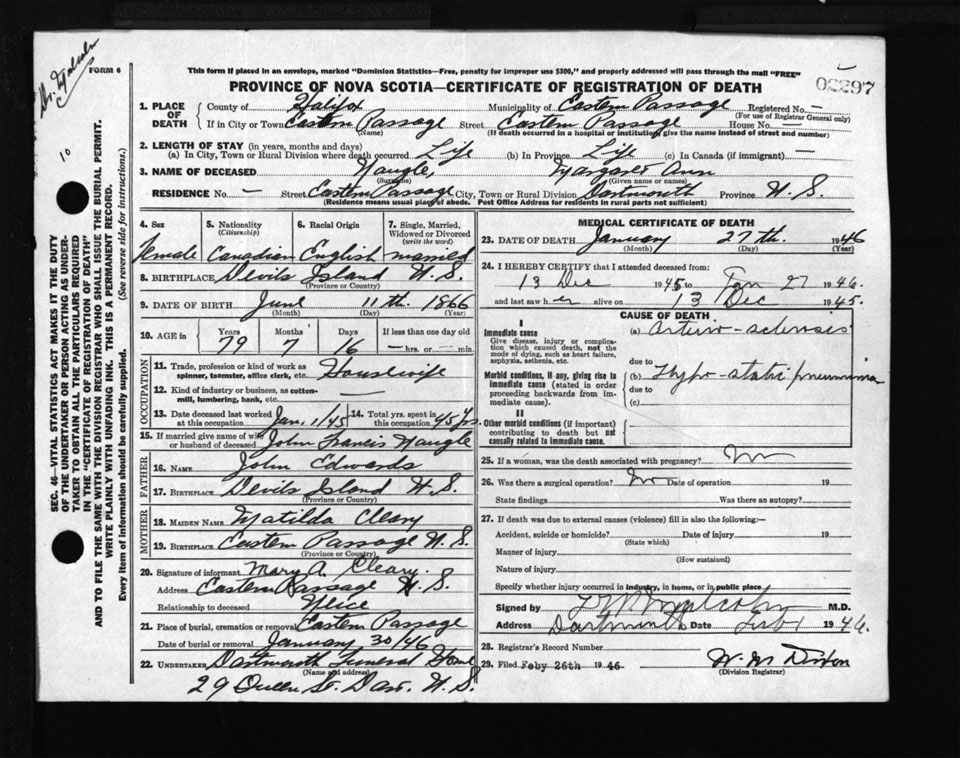 Dr. Malcolm
FORM 6
10
This form if placed in an envelope, marked "Dominion Statistics—Free, penalty for improper use $300," and properly addressed will pass through the mail "FREE"
PROVINCE OF NOVA SCOTIA—CERTIFICATE OF REGISTRATION OF DEATH
02297
1. PLACE OF DEATH County of Halifax Municipality of Eastern Passage Registered No. —
(For use of Registrar General only)
If in City or Town Eastern Passage Street Eastern Passage House No. —
(Name) (If death occurred in a hospital or institution, give the name instead of street and number)
2. LENGTH OF STAY (in years, months and days)
(a) In City, Town or Rural Division where death occurred Life (b) In Province Life (c) In Canada (if immigrant) —
3. NAME OF DECEASED Naugle, Margaret Ann
(Surname) (Given name or names)
RESIDENCE No. — Street Eastern Passage City, Town or Rural Division Dartmouth Province N. S.
(Residence means usual place of abode. Post Office Address for residents in rural parts not sufficient)
4. Sex 5. Nationality (Citizenship) 6. Racial Origin 7. Single, Married, Widowed or Divorced (write the word)
Female Canadian English married
8. BIRTHPLACE Devils Island N. S.
(Province or Country)
9. DATE OF BIRTH June 11th. 1866
(Month) (Day) (Year)
10. AGE in Years Months Days If less than one day old
79 7 16 — hrs. or — min.
OCCUPATION
11. Trade, profession or kind of work as spinner, teamster, office clerk, etc. Housewife
12. Kind of industry or business, as cotton-mill, lumbering, bank, etc. —
13. Date deceased last worked at this occupation Jan. 1/45 14. Total yrs. spent in this occupation 45 yrs
15. If married give name of wife or husband of deceased John Francis Naugle
FATHER
16. NAME John Edwards
17. BIRTHPLACE Devils Island N. S.
(Province or Country)
MOTHER
18. MAIDEN NAME Matilda Cleary
19. BIRTHPLACE Eastern Passage N. S.
(Province or Country)
20. Signature of informant Mary A. Cleary.
Address Eastern Passage N. S.
Relationship to deceased Niece
21. Place of burial, cremation or removal Eastern Passage
Date of burial or removal January 30/46
22. UNDERTAKER Dartmouth Funeral Home
(Name and address)
29 Queen St. Dart. N. S.
MEDICAL CERTIFICATE OF DEATH
23. DATE OF DEATH January 27th. 1946
(Month) (Day) (Year)
24. I HEREBY CERTIFY that I attended deceased from:
13 Dec 1945 to Jan 27 1946.
and last saw her alive on 13 Dec 1945.
CAUSE OF DEATH
I
Immediate cause (a) Arterio-sclerosis
Give disease, injury or complication which caused death, not the mode of dying, such as heart failure, asphyxia, asthenia, etc.
due to
Morbid conditions, if any, giving rise to immediate cause (stated in order proceeding backwards from immediate cause). (b) Hypo-static pneumonia
due to
(c)
II
Other morbid conditions (if important) contributing to death but not causally related to immediate cause.
25. If a woman, was the death associated with pregnancy? No
26. Was there a surgical operation? No Date of operation 19
State findings Was there an autopsy?
27. If death was due to external causes (violence) fill in also the following:—
Accident, suicide or homicide? Date of injury 19
(State which)
Manner of injury
(How sustained)
Nature of injury
Specify whether injury occurred in industry, in home, or in public place
Signed by Malcolm M.D.
Address Dartmouth Date Feb 1 1946.
28. Registrar's Record Number
29. Filed Feby 26th 1946 (Division Registrar)
SEC. 46—VITAL STATISTICS ACT MAKES IT THE DUTY
OF THE UNDERTAKER OR PERSON ACTING AS UNDER-
TAKER TO OBTAIN ALL THE PARTICULARS REQUIRED
IN THE "CERTIFICATE OF REGISTRATION OF DEATH"
AND TO FILE THE SAME WITH THE DIVISION REGISTRAR WHO SHALL ISSUE THE BURIAL PERMIT.
WRITE PLAINLY WITH UNFADING INK. THIS IS A PERMANENT RECORD.
Every item of information should be carefully supplied. (See reverse side for instructions.)